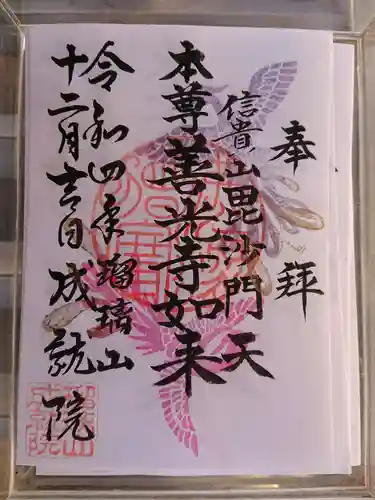 奉拝
信貴山毘沙門天
本尊善光寺如来
令和四年瑠璃山
十二月吉日成就院